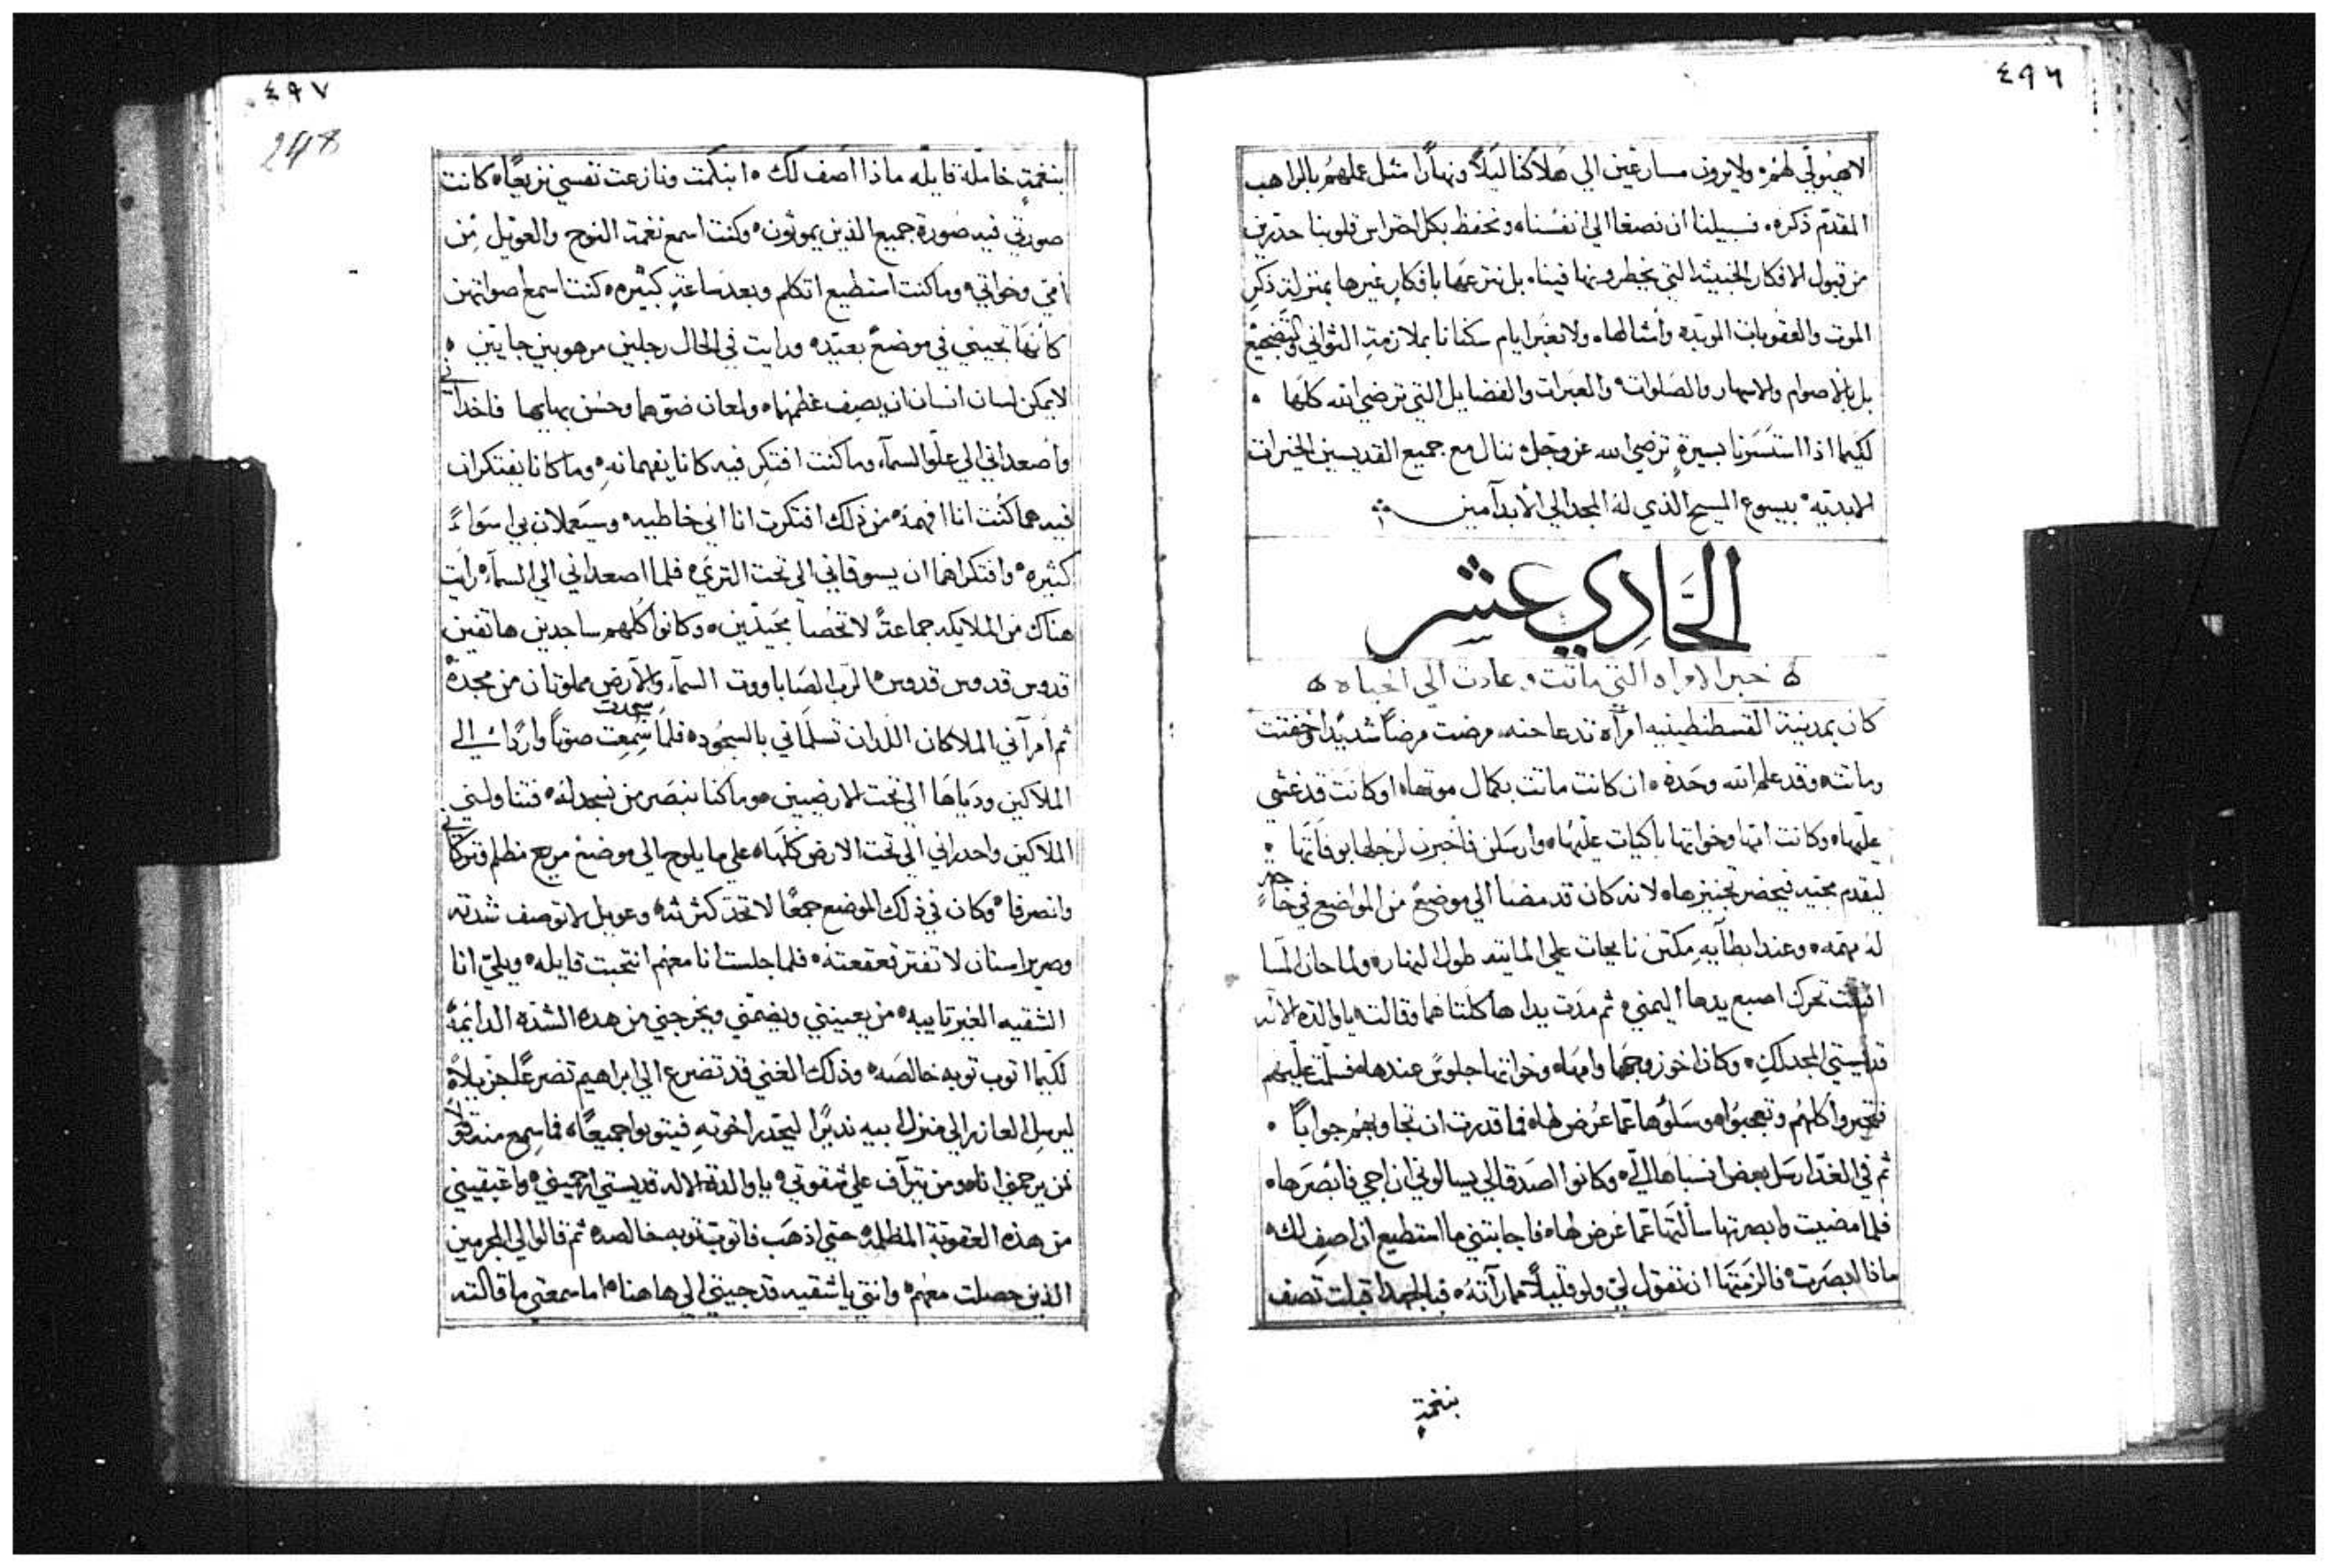 ٤٩٦
لاهيولي لهم ولا يرون مسارعين الي هلاكنا ليلاً ونهاراً مثل عملهم بالراهب
المقدم ذكره . فسبيلنا ان نصغا الي انفسناه ونحفظ بكل احتراس قلوبنا حدرين
من قبول الافكار الخبيثه التي يخطرونها فيناه بل ننزعها بافكار غيرها بمنزلة ذكر
الموت والعقوبات الموبده وأمثالهاه ولا نعبر ايام سكنانا بملازمة التواني والتضجيع
بل بالاصوام والاسهار والصلوات والعبرات والفضايل التي ترضي الله كلها .
لكيما اذا استسرنا بسيرةٍ ترضي الله عز وجل ننال مع جميع القديسين الخيرات
الابديه بيسوع المسيح الذي له المجد الي الأبد آمين
الحَّادِي عَشِر
ه خبر الامراه التي ماتت وعادت الي الحياه ه
كان بمدينة القسطنطينيه امرأه تدعا حنه مرضت مرضاً شديداً وخفتت
وماتت وقد علم الله وحدة ان كانت ماتت بكمال موتهاه او كانت قد غشي
عليهاه وكانت امها وخواتها باكيات عليهاه وارسلن فأخبرن لرجلها بوفاتها .
ليقدم مجيه فيحضر تجنيزهاه لانه كان قد مضا الي موضعٍ من المواضع في حاجة
له مهمه وعند ابطآيه مكثن نايحات علي المايته طول النهاره ولما حان المسا
اقبلت تحرك اصبع يدها اليمني ثم مدت يداها كلتاهما وقالت يا والدة الاله
قديستي المجد لكِ وكان اخو زوجها وامهاه وخواتها جلوسٌ عندهاه فسلمت عليهم
فتحيروا كلهم وتعجبوا وسَلوها عما عُرض لهاه فما قدرت ان تجاوبهم جواباً .
ثم في الغد ارسل بعض انسباها اليّ وكانوا اصدقا لي يسالوني ان اجي فابصرهاه
فلما مضيت وابصرتها سألتها عما عَرض لهاه فاجابتني ما استطيع ان اصف لك
ماذا ابصرت فالزمتها ان تقول لي ولو قليلاً مما رآته فبالجهد اقبلت تصف
بنغمةٍ
٤٩٧
248
بنغمةٍ خاملة قايله ماذا اصف لك ه ابتكمت ونازعت نفسي نزيعاً كانت
صورتي فيه صورة جميع الذين يموتون وكنت اسمع نغمة النوح والعويل مِن
امي وخواتي وما كنت استطيع اتكلم وبعد ساعةٍ كبيره كنت اسمع اصواتهن
كأنها تجيني في موضعٍ بعيده ورايت في الحال رجلين مرهوبين جايين ه
لا يمكن لسان انسان ان يصف عظمهماه ولمعان ضوهما وحسن بهايهما فاخداني
وأصعداني الي علو السمآء وما كنت افتكر فيه كانا يفهمانهِ وما كانا يفتكران
فيه هما كنت انا افهمه من ذلك افتكرت انا اني خاطيه وسيعملان بي اسَواءً
كثيره وافتكراهما ان يسوقاني الي تحت التري فلما اصعداني الي السمآء رايت
هناك من الملايكه جماعةً لا تحصا مجندين وكانوا كلهم ساجدين هاتفين
قدوس قدوس قدوس الرب الصاباووت السمآء والآرض مملوتان من مجدة
ثم أمرآني الملاكان اللدان تسلماني بالسجود فلما سجدت سمعت صوتاً وارداً الي
الملاكين ودياها الي تحت الارضيين وما كنا نبصر من نسجد له فتناولني
الملاكين واحدراني الي تحت الارض كلهاه علي ما يلوح الي موضعٍ مريع مظلم وتركاني
وانصرفا وكان في ذلك الموضع جمعاً لا تحد كثرته وعويل لا توصف شدته
وصرير اسنان لا تفتر قعقعته فلما جلست انا معهم انتحبت قايله ويلي انا
الشقيه الغير تايبه من يعينني ويضمني ويخرجني من هده الشده الدايمه
لكيما اتوب توبه خالصه وذلك الغني قد تضرع الي ابراهيم تضرعاً جزيلاً
ليرسل العازر الي منزل ابيه نديرًا ليحدر اخوته فيتوبوا جميعاًه فما سمع منه قولا
فمن يرحمني انا ومن يترآف علي شقوتي يا والدة الاله قديستي ارحميني واعتقيني
من هذه العقوبة المظلمه حتي اذهب فاتوب توبه خالصه ثم قالوا لي المجرمين
الذين حصلت معهم وانتي يا شقيه قد جيتي الي هاهناه اما سمعتي ما قالته